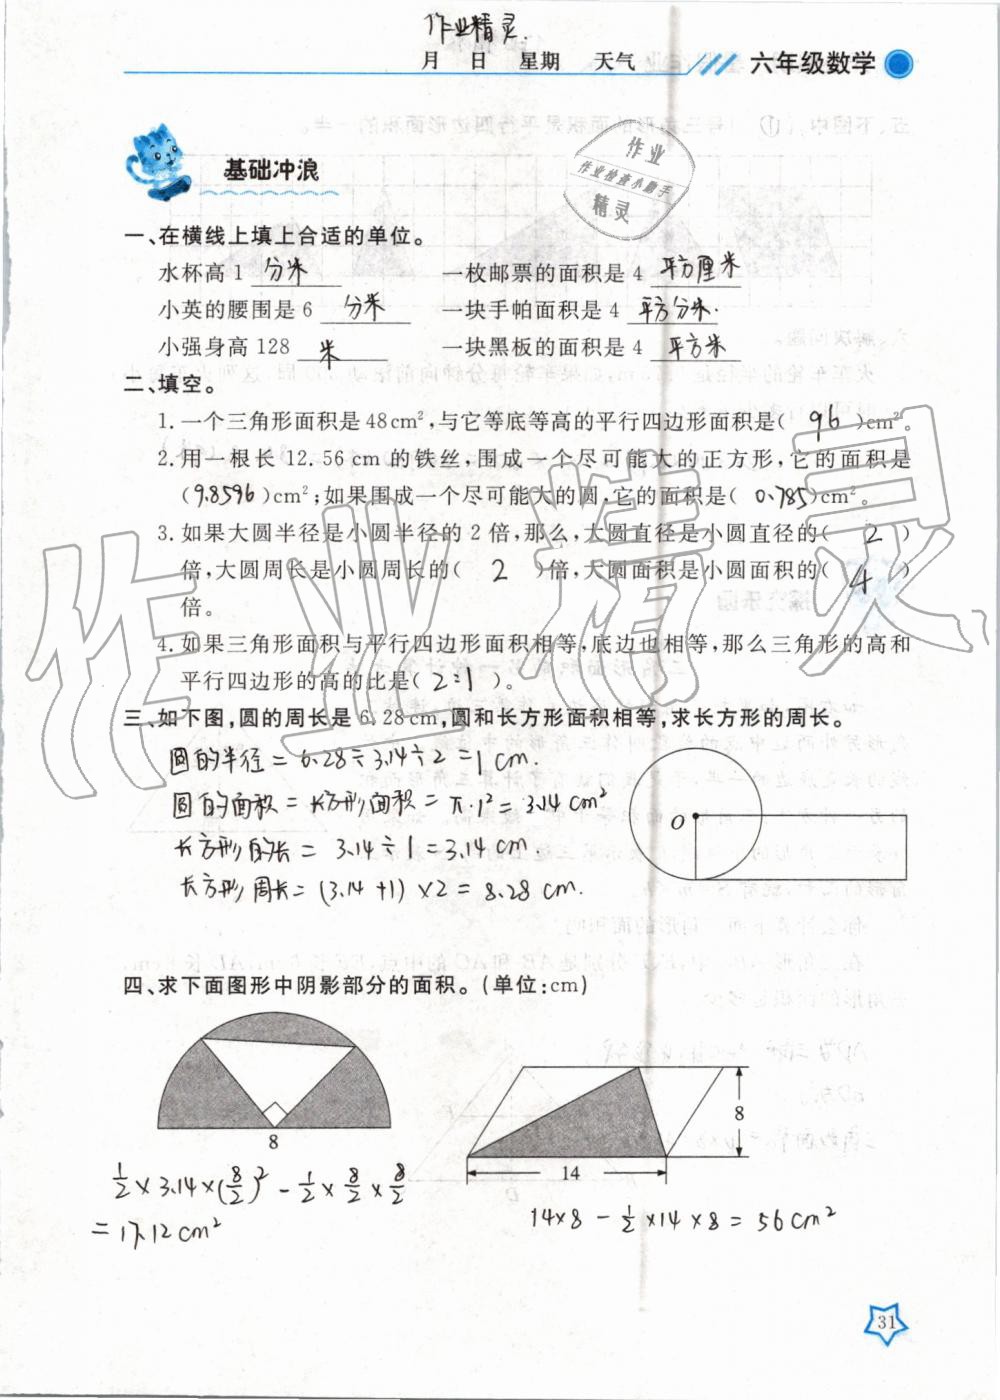 作业精灵.
月 日 星期 天气 六年级数学
基础冲浪
作业
作业检查小助手
精灵
一、在横线上填上合适的单位。
水杯高1 分米 一枚邮票的面积是4 平方厘米
小英的腰围是6 分米 一块手帕面积是4 平方分米.
小强身高128 米 一块黑板的面积是4 平方米
二、填空。
1.一个三角形面积是48cm²,与它等底等高的平行四边形面积是( 96 )cm²。
2.用一根长12.56cm的铁丝,围成一个尽可能大的正方形,它的面积是
(9.8596)cm²;如果围成一个尽可能大的圆,它的面积是( 0.785)cm²。
3.如果大圆半径是小圆半径的2倍,那么,大圆直径是小圆直径的( 2 )
倍,大圆周长是小圆周长的( 2 )倍,大圆面积是小圆面积的( 4 )
倍。
4.如果三角形面积与平行四边形面积相等,底边也相等,那么三角形的高和
平行四边形的高的比是( 2:1 )。
三、如下图,圆的周长是6.28cm,圆和长方形面积相等,求长方形的周长。
圆的半径=6.28÷3.14÷2=1cm.
圆的面积=长方形面积=π·1²=3.14cm²
长方形的长=3.14÷1=3.14cm.
长方形周长=(3.14+1)×2=8.28cm.
O
四、求下面图形中阴影部分的面积。(单位:cm)
8
8
14
1/2×3.14×(8/2)²-1/2×8/2×8/2
=17.12cm²
14×8-1/2×14×8=56cm²
作业精灵
31